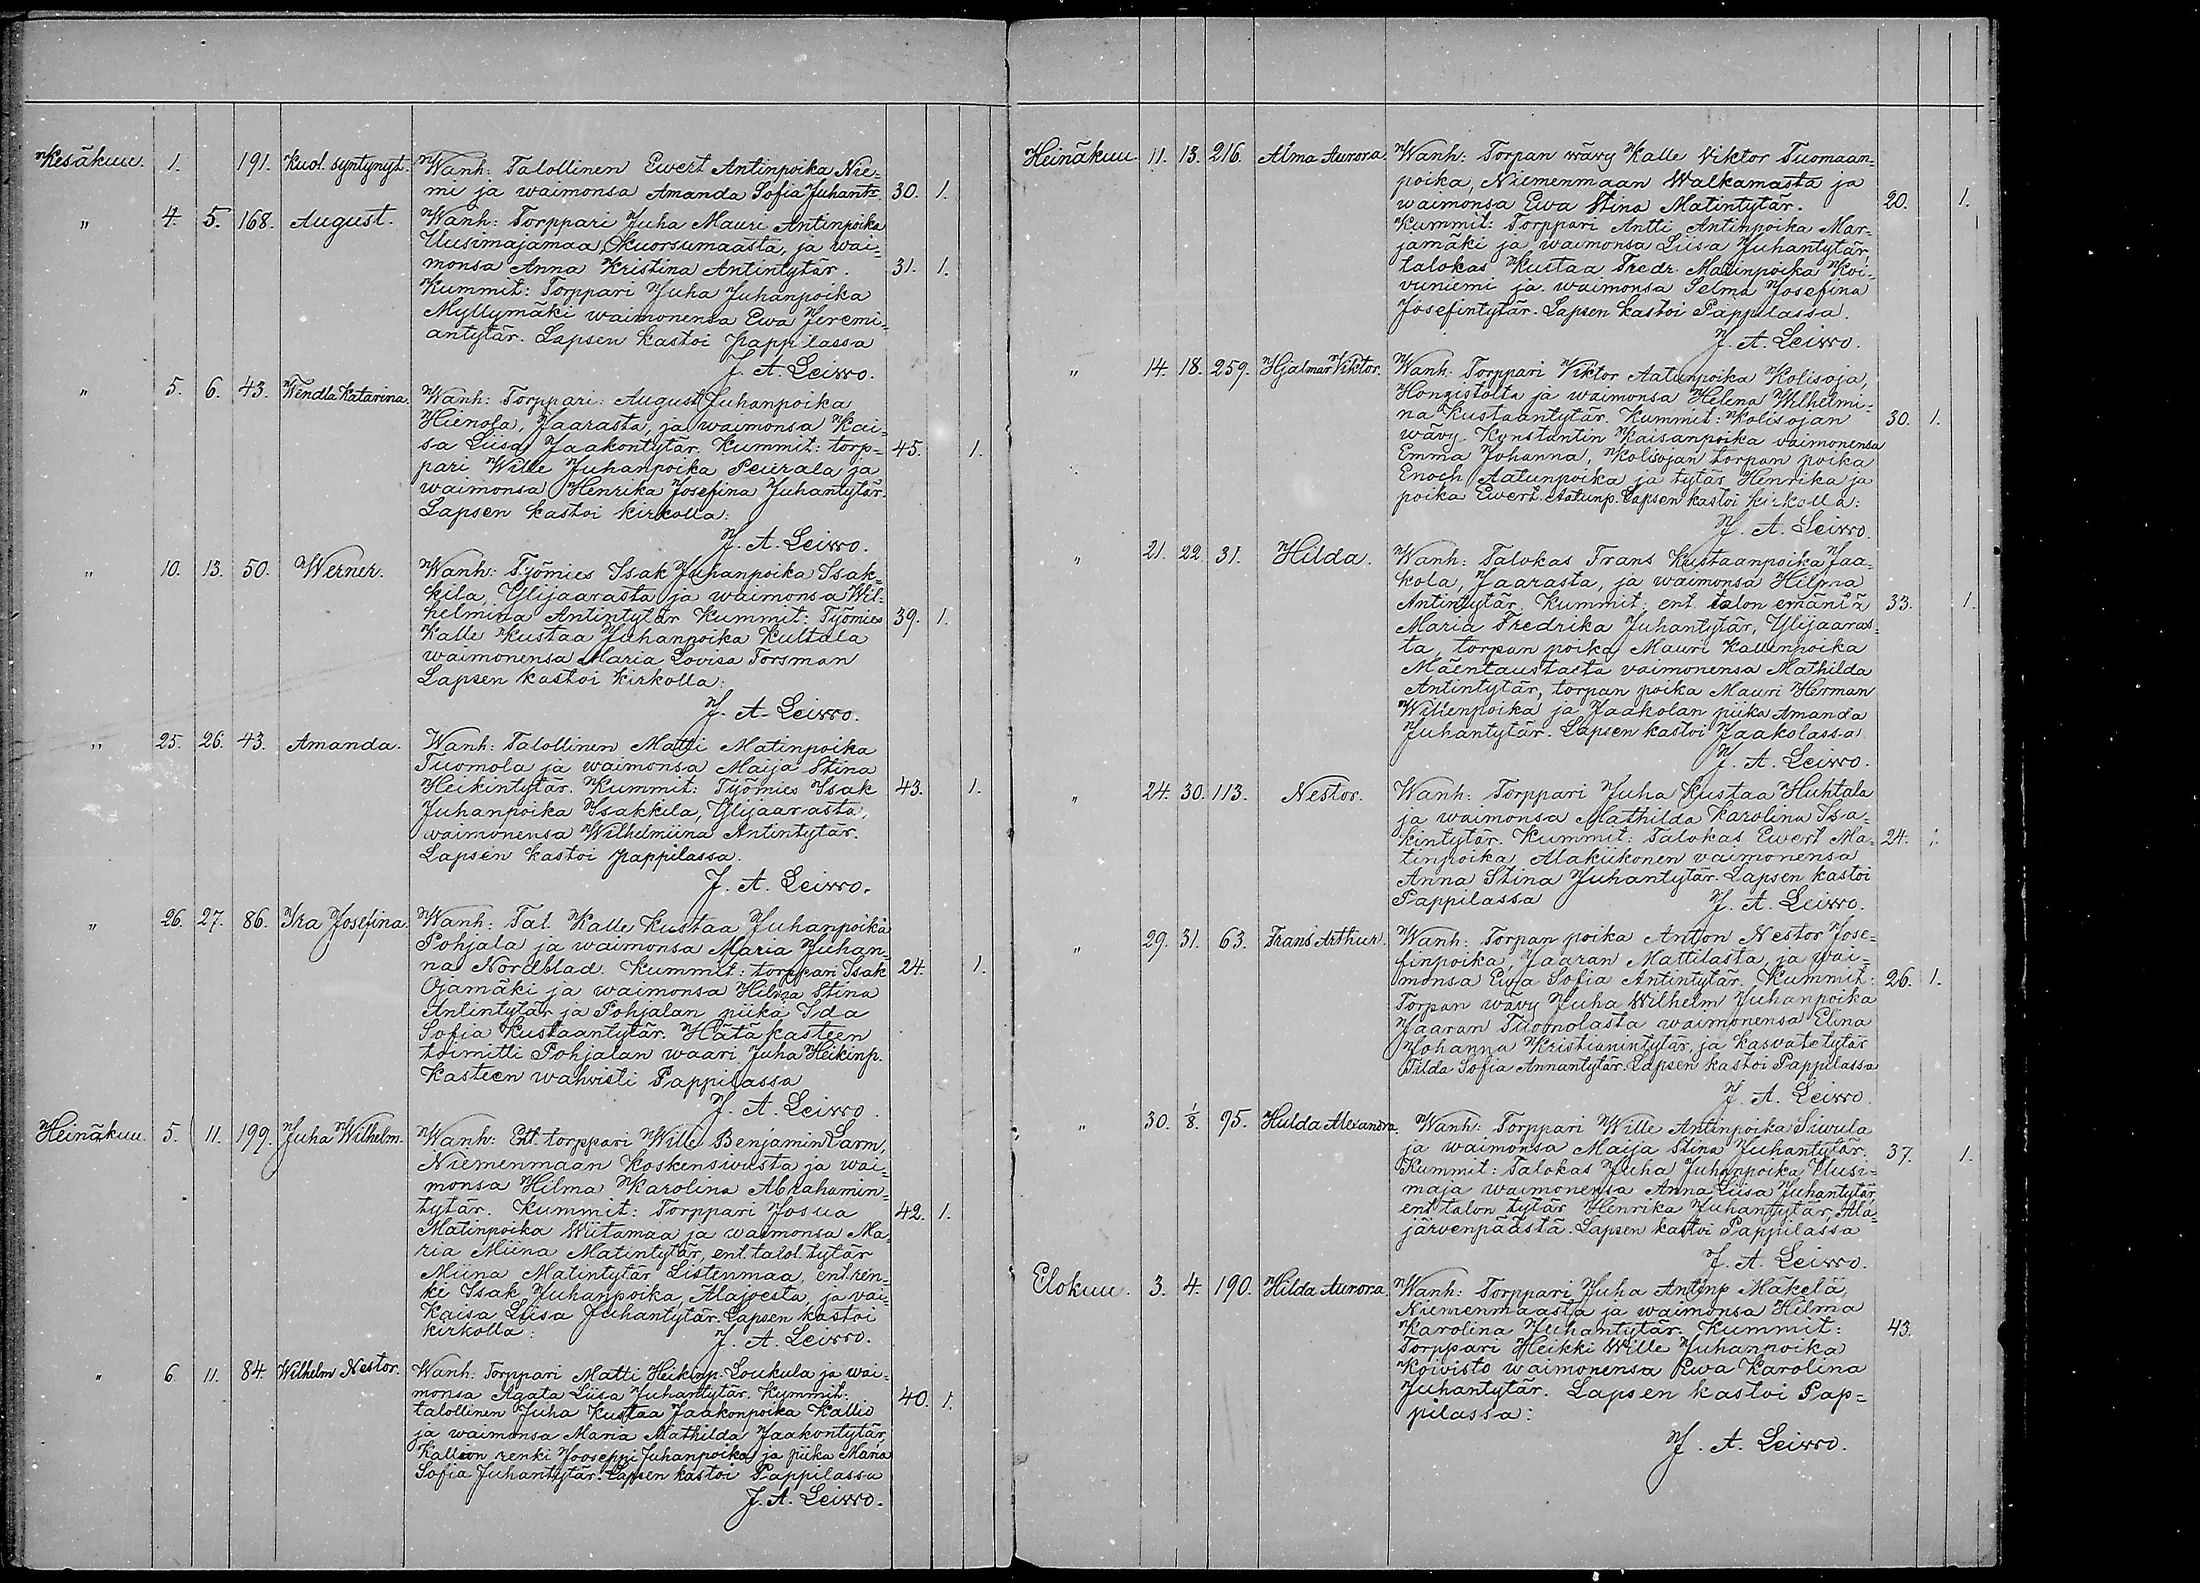 Kesäkuu. 1. 191. Kuol. syntynyt. Wanh: Talollinen Ewert Antinpoika Nie=
mi ja waimonsa Amanda Sofia Juhant= 30. 1.
„ 4. 5. 168. August. Wanh: Torppari Juha Mauri Antinpoika
Uusimajamaa, Skuorsumaasta, ja wai=
monsa Anna Kristina Antintytär. 31. 1.
Kummit: Torppari Juha Juhanpoika
Myllymäki waimonensa Ewa Jeremi=
antytär. Lapsen kastoi pappilassa
J. A. Leiwo.
„ 5. 6. 43. Wendla Katarina. Wanh: Torppari: August Juhanpoika
Hienola, Jaarasta, ja waimonsa Kai=
sa Liisa Jaakontytär. Kummit: torp= 45. 1.
pari Wille Juhanpoika Peurala ja
waimonsa Henrika Josefina Juhantytär.
Lapsen kastoi kirkolla:
J. A. Leiwo.
„ 10. 13. 50. Werner. Wanh: Työmies Isak Juhanpoika Isak=
kila, Ylijaarasta ja waimonsa Wil=
helmina Antintytär Kummit: Työmies 39. 1.
Kalle Kustaa Juhanpoika Kultala
waimonensa Maria Lovisa Forsman
Lapsen kastoi kirkolla:
J. A. Leiwo.
„ 25. 26. 43. Amanda. Wanh: Talollinen Matti Matinpoika
Tuomola ja waimonsa Maija Stina
Heikintytär. Kummit: Työmies Isak 43. 1.
Juhanpoika Isakkila, Ylijaarasta,
waimonensa Wilhelmiina Antintytär.
Lapsen kastoi pappilassa.
J. A. Leiwo.
„ 26. 27. 86. Ira Josefina. Wanh: Tal. Kalle Kustaa Juhanpoika
Pohjala ja waimonsa Maria Juhan=
na Nordblad. Kummit: torppari Isak 24. 1.
Ojamäki ja waimonsa Hilma Stina
Antintytär ja Pohjalan piika Ida
Sofia Kustaantytär. Hätäkasteen
toimitti Pohjalan waari Juha Heikinp.
Kasteen wahvisti Pappilassa
J. A. Leiwo.
Heinäkuu. 5. 11. 199. Juha Wilhelm. Wanh: Ent torppari Wille Benjamin Larm,
Niemenmaan Koskensivusta ja wai=
monsa Hilma Karolina Abrahamin=
tytär. Kummit: Torppari Josua 42. 1.
Matinpoika Wiitamaa ja waimonsa Ma
ria Miina Matintytär, ent. talol. tytär
Miina Matintytär Listenmaa, ent ren=
ki Isak Juhanpoika, Alajoesta, ja vai=
Kaisa Liisa Juhantytär. Lapsen kastoi
kirkolla: J. A. Leiwo.
„ 6 11. 84. Wilhelm Nestor. Wanh: Torppari Matti Heikinp. Loukula ja wai=
monsa Agata Liisa Juhantytär. Kummit:
talollinen Juha Kustaa Jaakonpoika Kallio 40. 1.
ja waimonsa Maria Mathilda Jaakontytär
Kallion renki Jooseppi Juhanpoika ja piika Maria
Sofia Juhantytär. Lapsen kastoi Pappilassa
J. A. Leiwo.
Heinäkuu. 11. 13. 216. Alma Aurora. Wanh: Torpan wävy Kalle Viktor Tuomaan=
poika, Niemenmaan Walkamasta ja
waimonsa Ewa Stina Matintytär. 20. 1.
Kummit: Torppari Antti Antinpoika Mar=
jamäki ja waimonsa Liisa Juhantytär,
talokas Kustaa Fredr. Matinpoika Koi=
vuniemi ja waimonsa Selma Josefina
Josefintytär. Lapsen kastoi Pappilassa.
J. A. Leiwo.
„ 14. 18. 259. Hjalmar Viktor. Wanh. Torppari Viktor Aatunpoika Kolisoja,
Hongistolta ja waimonsa Helena Wilhelmi=
na Kustaantytär. Kummit: Kolisojan 30. 1.
wävy Kynstantin Kaisanpoika vaimonensa
Emma Johanna, Kolisojan torpan poika
Enoch Aatunpoika ja tytär Henrika ja
poika Ewert. Aatunp. Lapsen kastoi kirkolla:
J. A. Leiwo.
„ 21. 22 31. Hilda. Wanh: Talokas Frans Kustaanpoika Jaa=
kola, Jaarasta, ja waimonsa Hilma
Antintytär. Kummit: ent. talon emäntä 33. 1.
Maria Fredrika Juhantytär, Ylijaaras=
ta, torpan poika Mauri Kallenpoika
Mäentaustasta vaimonensa Mathilda
Antintytär, torpan poika Mauri Herman
Willenpoika ja Jaakolan piika Amanda
Juhantytär. Lapsen kastoi Jaakolassa
J. A. Leiwo.
„ 24. 30. 113. Nestor. Wanh: Torppari Juha Kustaa Huhtala
ja waimonsa Mathilda Karolina Isa=
kintytär. Kummit: Talokas Ewert Ma= 24. 1.
tinpoika Alakiikonen vaimonensa
Anna Stina Juhantytär. Lapsen kastoi
Pappilassa J. A. Leiwo.
„ 29. 31. 63. Frans Arthur. Wanh: Torpan poika Anton Nestor Jose=
finpoika, Jaaran Mattilasta, ja wai=
monsa Ewa Sofia Antintytär. Kummit: 26. 1.
Torpan wävy Juha Wilhelm Juhanpoika
Jaaran Tuomolasta waimonensa Elina
Johanna Kristianintytär ja kasvatetytär
Tilda Sofia Annantytär. Lapsen kastoi Pappilassa
J. A. Leiwo.
„ 30. 1/8. 95. Hulda Alexandra. Wanh: Torppari Wille Antinpoika Siwula
ja waimonsa Maija Stina Juhantytär. 37. 1.
Kummit: Talokas Juha Juhanpoika Uusi=
maja waimonensa Anna Liisa Juhantytär,
ent talon tytär Henrika Juhantytär, Ala=
järvenpäästä. Lapsen kastoi Pappilassa
J. A. Leiwo.
Elokuu. 3. 4. 190. Hilda Aurora. Wanh: Torppari Juha Antinp Mäkelä,
Niemenmaasta ja waimonsa Hilma
Karolina Juhantytär. Kummit: 43.
Torppari Heikki Wille Juhanpoika
Koivisto waimonensa Ewa Karolina
Juhantytär. Lapsen kastoi Pap=
pilassa:
J. A. Leiwo.